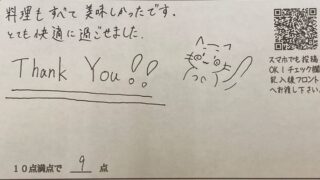 料理もすべて美味しかったです。
とても快適に過ごせました。
Thank You!!
スマホでも投稿
OK!チェック欄
記入後フロント
へお渡し下さい。
10点満点で 9 点